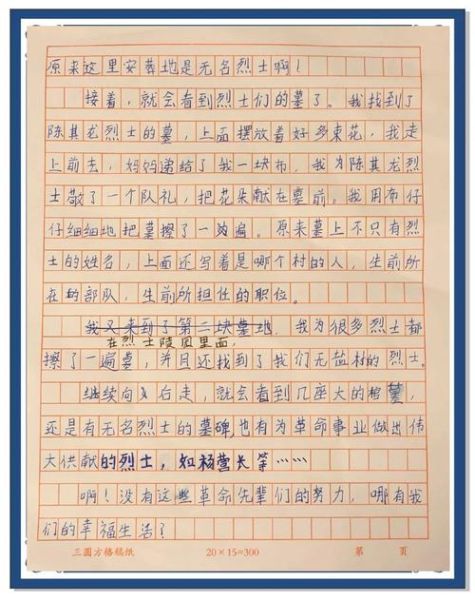 原来这里安葬地是无名烈士啊！
接着，就会看到烈士们的墓了。我找到了
陈其龙烈士的墓，上面摆放着好多束花，我走
上前去，妈妈递给了我一块布，我为陈其龙烈
士敬了一个队礼，把花朵献在墓前。我用布仔
仔细细地把墓擦了一遍。原来墓上不只有烈
士的姓名，上面还写着是哪个村的人，生前所
在的部队，生前所担任的职位。
我又来到了第二块墓地，我为很多烈士都
在烈士陵园里面，
擦了一遍墓，并且还找到了我们无盐村的烈士。
继续向右走，就会看到几座大的墓，
还是有无名烈士的墓碑，也有为革命事业做出伟
大供献的烈士，如杨营长等……
啊！没有这些革命先辈们的努力，哪有我
们的幸福生活？
三圆方格稿纸 20×15=300 第 页